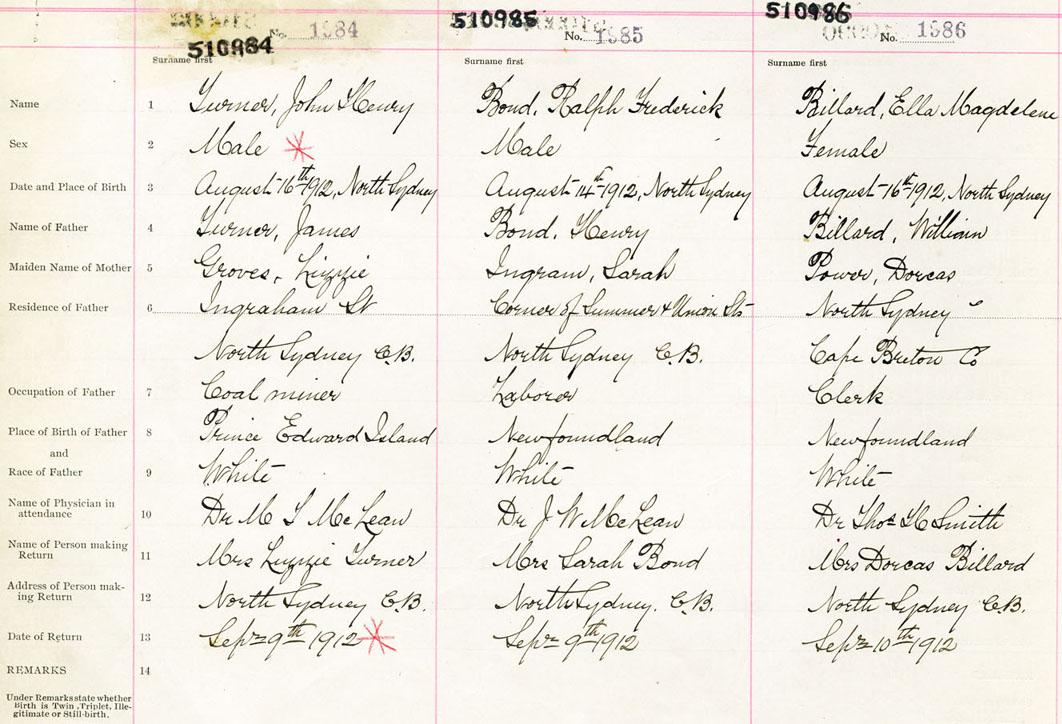 510984 No. 1984
510985 No. 1985
510986 No. 1986
Surname first Surname first Surname first
Name 1 Turner, John Henry Bond, Ralph Frederick Billard, Ella Magdelene
Sex 2 Male Male Female
Date and Place of Birth 3 August 16th 1912, North Sydney August 14th 1912, North Sydney August 16th 1912, North Sydney
Name of Father 4 Turner, James Bond, Henry Billard, William
Maiden Name of Mother 5 Groves, Lizzie Ingram, Sarah Power, Dorcas
Residence of Father 6 Ingraham St Corner of Summer & Union Sts North Sydney
North Sydney C.B. North Sydney C.B. Cape Breton Co
Occupation of Father 7 Coal miner Laborer Clerk
Place of Birth of Father 8 Prince Edward Island Newfoundland Newfoundland
and
Race of Father 9 White White White
Name of Physician in
attendance 10 Dr M McLean Dr J W McLean Dr Thos H Smith
Name of Person making
Return 11 Mrs Lizzie Turner Mrs Sarah Bond Mrs Dorcas Billard
Address of Person mak-
ing Return 12 North Sydney C.B. North Sydney. C.B. North Sydney C.B.
Date of Return 13 Sepr 9th 1912 Sepr 9th 1912 Sepr 10th 1912
REMARKS 14
Under Remarks state whether
Birth is Twin, Triplet, Ille-
gitimate or Still-birth.